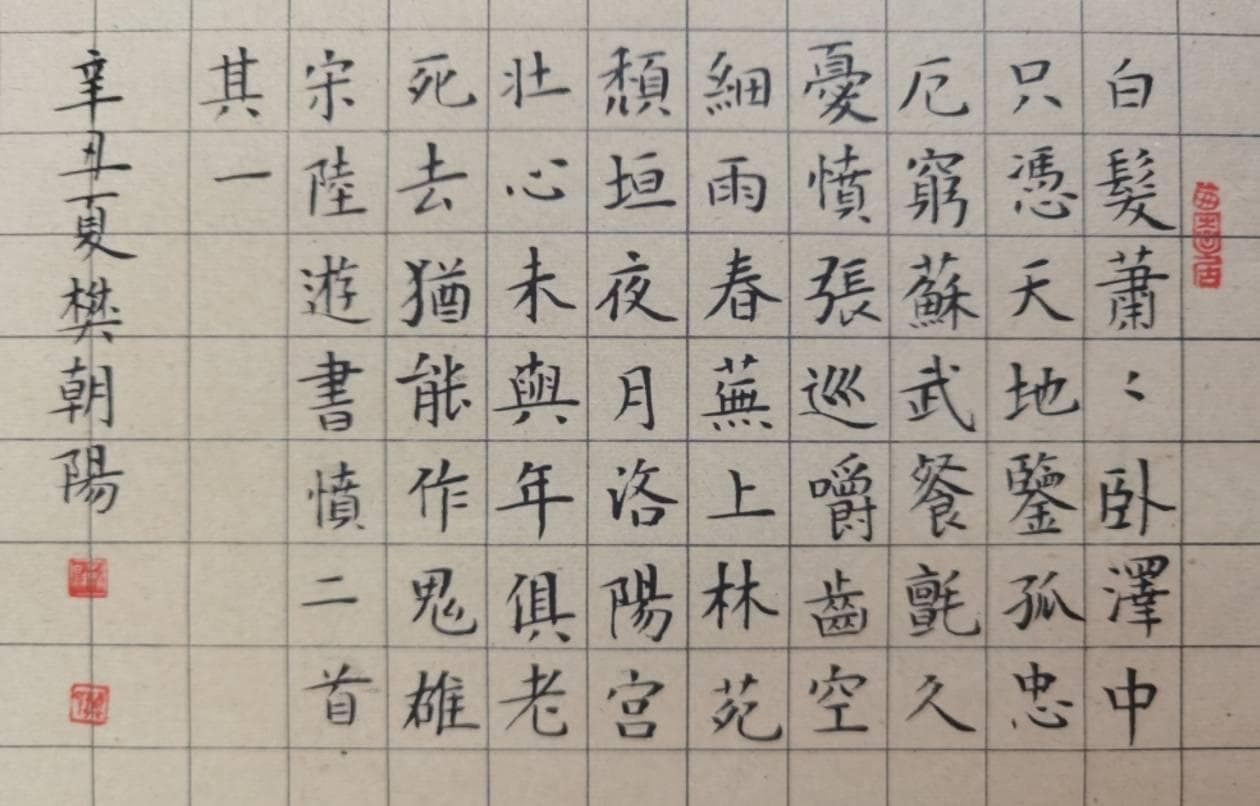 白髮蕭〻臥澤中
只憑天地鑒孤忠
厄窮蘇武餐氈久
憂憤張巡嚼齒空
細雨春蕪上林苑
頹垣夜月洛陽宮
壯心未與年俱老
死去猶能作鬼雄
宋陸遊書憤二首
其一
辛丑夏樊朝陽